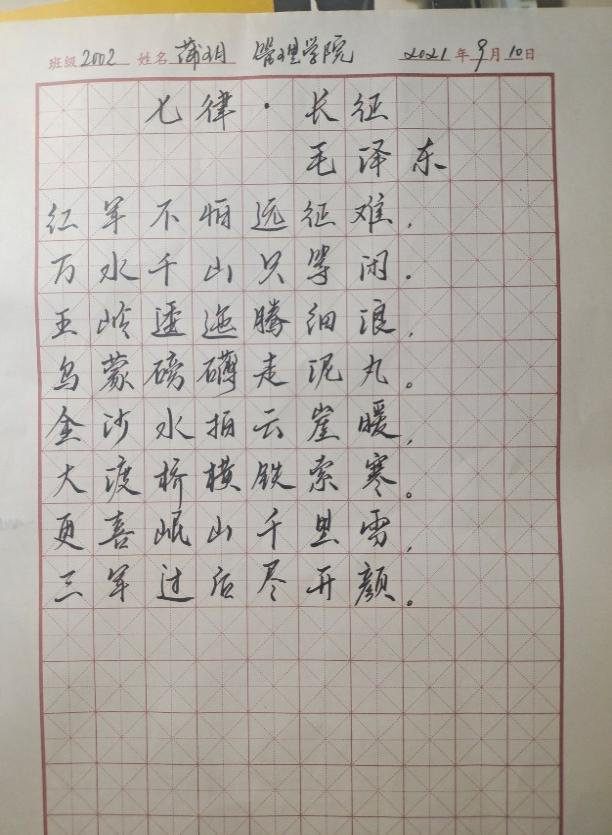 班级2002 姓名 蒲玥 管理学院 2021年9月10日
七律·长征
毛泽东
红军不怕远征难，
万水千山只等闲.
五岭逶迤腾细浪，
乌蒙磅礴走泥丸。
金沙水拍云崖暖，
大渡桥横铁索寒。
更喜岷山千里雪，
三军过后尽开颜。